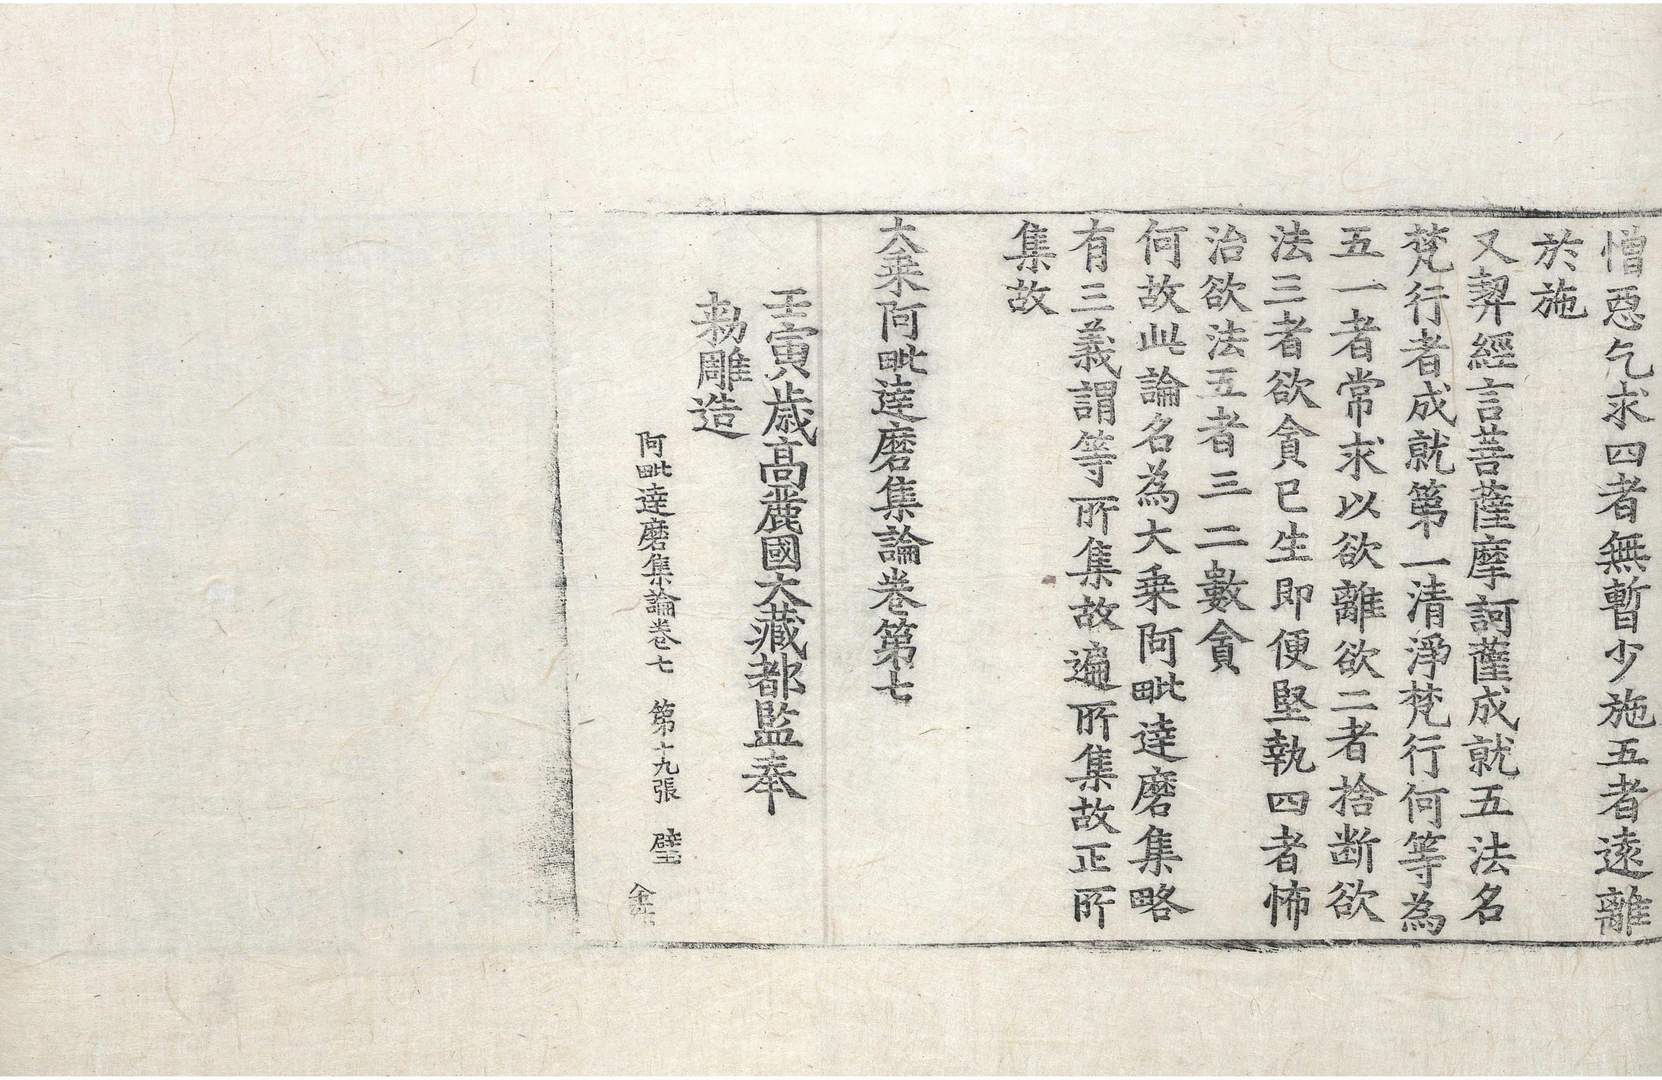 憎惡乞求四者無暫少施五者遠離
於施
又契經言菩薩摩訶薩成就五法名
梵行者成就第一清淨梵行何等為
五一者常求以欲離欲二者捨斷欲
法三者欲貪已生即便堅執四者怖
治欲法五者三二數貪
何故此論名為大乗阿毗達磨集略
有三義謂等所集故遍所集故正所
集故
大乗阿毗達磨集論卷第七
壬寅歲高麗國大藏都監奉
勑雕造
阿毗達磨集論卷七 第十九張 璧